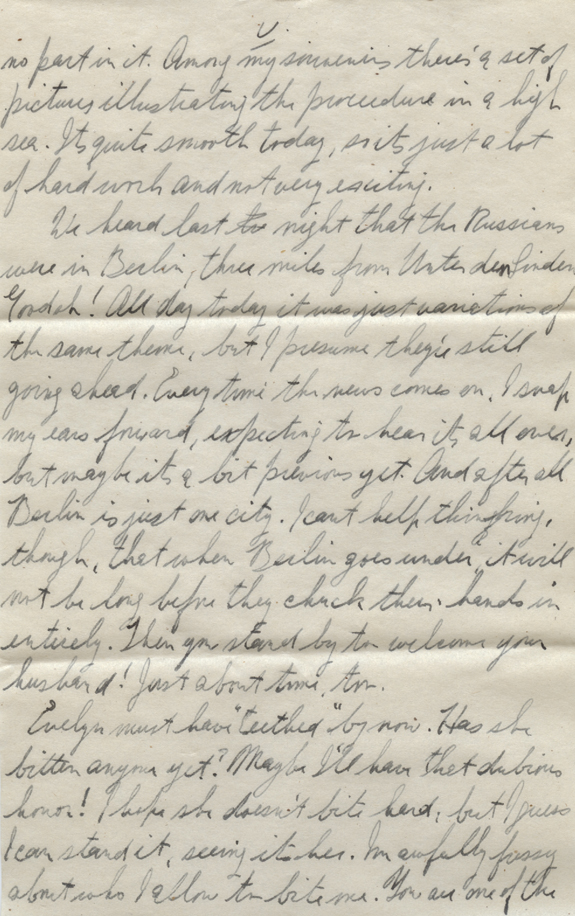 V
no part in it. Among my souvenirs there's a set of
pictures illustrating the procedure in a high
sea. Its quite smooth today, so its just a lot
of hard work and not very exciting.
We heard last to night that the Russians
were in Berlin, three miles from Unter den Linden
Goodoh! All day today it was just variations of
the same theme, but I presume they're still
going ahead. Every time the news comes on, I snap
my ears forward, expecting to hear its all over,
but maybe its a bit previous yet. And after all
Berlin is just one city. I cant help thinking,
though, that when Berlin goes under, it will
not be long before they chuck their hands in
entirely. Then you stand by to welcome your
husband! Just about time, too.
Evelyn must have "teethed" by now. Has she
bitten anyone yet? Maybe I'll have that dubious
honor! I hope she doesn't bite hard, but I guess
I can stand it, seeing its her. Im awfully fussy
about who I allow to bite me. You are one of the